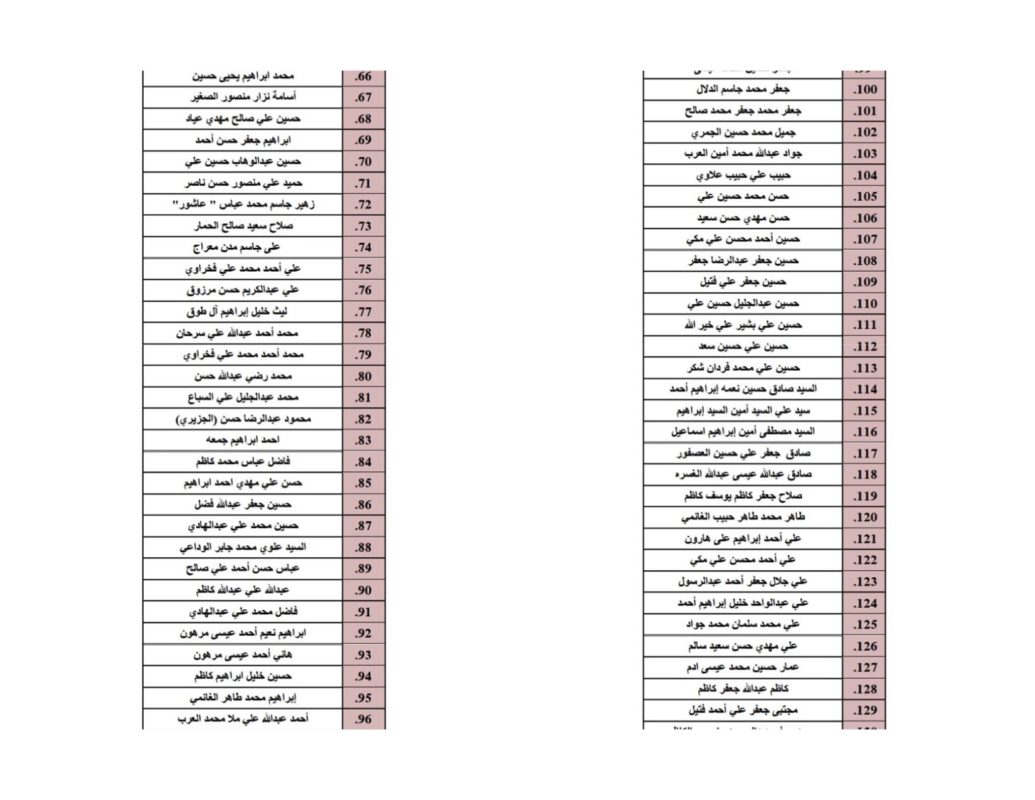 66. محمد ابراهيم يحيى حسين
67. أسامة نزار منصور الصغير
68. حسين علي صالح مهدي عياد
69. ابراهيم جعفر حسن أحمد
70. حسين عبدالوهاب حسين علي
71. حميد علي منصور حسن ناصر
72. زهير جاسم محمد عباس " عاشور"
73. صلاح سعيد صالح الحمار
74. على جاسم مدن معراج
75. علي أحمد محمد علي فخراوي
76. علي عبدالكريم حسن مرزوق
77. ليث خليل إبراهيم آل طوق
78. محمد أحمد عبدالله علي سرحان
79. محمد أحمد محمد علي فخراوي
80. محمد رضي عبدالله حسن
81. محمد عبدالجليل علي السباع
82. محمود عبدالرضا حسن (الجزيري)
83. احمد ابراهيم جمعه
84. فاضل عباس محمد كاظم
85. حسن علي مهدي احمد ابراهيم
86. حسين جعفر عبدالله فضل
87. حسين محمد علي عبدالهادي
88. السيد علوي محمد جابر الوداعي
89. عباس حسن أحمد علي صالح
90. عبدالله علي عبدالله كاظم
91. فاضل محمد علي عبدالهادي
92. ابراهيم نعيم أحمد عيسى مرهون
93. هاني أحمد عيسى مرهون
94. حسين خليل ابراهيم كاظم
95. إبراهيم محمد طاهر الغانمي
96. أحمد عبدالله علي ملا محمد العرب
100. جعفر محمد جاسم الدلال
101. جعفر محمد جعفر محمد صالح
102. جميل محمد حسين الجمري
103. جواد عبدالله محمد أمين العرب
104. حبيب علي حبيب علاوي
105. حسن محمد حسين علي
106. حسن مهدي حسن سعيد
107. حسين أحمد محسن علي مكي
108. حسين جعفر عبدالرضا جعفر
109. حسين جعفر علي فتيل
110. حسين عبدالجليل حسين علي
111. حسين علي بشير علي خير الله
112. حسين علي حسين سعد
113. حسين علي محمد فردان شكر
114. السيد صادق حسين نعمه إبراهيم أحمد
115. سيد علي السيد أمين السيد إبراهيم
116. السيد مصطفى أمين إبراهيم اسماعيل
117. صادق جعفر علي حسين العصفور
118. صادق عبدالله عيسى عبدالله الغسره
119. صلاح جعفر كاظم يوسف كاظم
120. طاهر محمد طاهر حبيب الغانمي
121. علي أحمد إبراهيم على هارون
122. علي أحمد محسن علي مكي
123. علي جلال جعفر أحمد عبدالرسول
124. علي عبدالواحد خليل إبراهيم أحمد
125. علي محمد سلمان محمد جواد
126. علي مهدي حسن سعيد سالم
127. عمار حسين محمد عيسى ادم
128. كاظم عبدالله جعفر كاظم
129. مجتبى جعفر علي أحمد فتيل